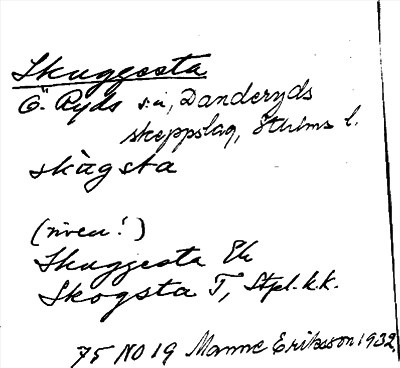 Skuggesta
Ö. Ryds s:n, Danderyds
skeppslag, Sthlms l.
skùgsta
(niveu!)
Skuggesta Ek
Skogsta T, Stpl. k.k.
75 NO 19 Manne Eriksson 1932.